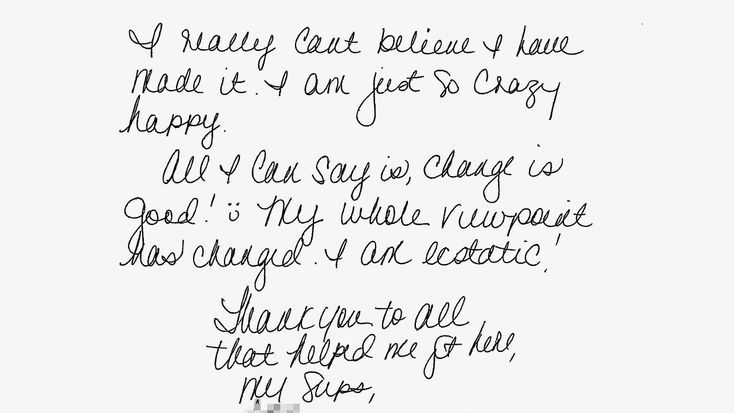 I really cant believe I have
made it. I am just so crazy
happy.
All I can say is, change is
good! ü My whole viewpoint
has changed. I am ecstatic!
Thank you to all
that helped me get here,
my sups,